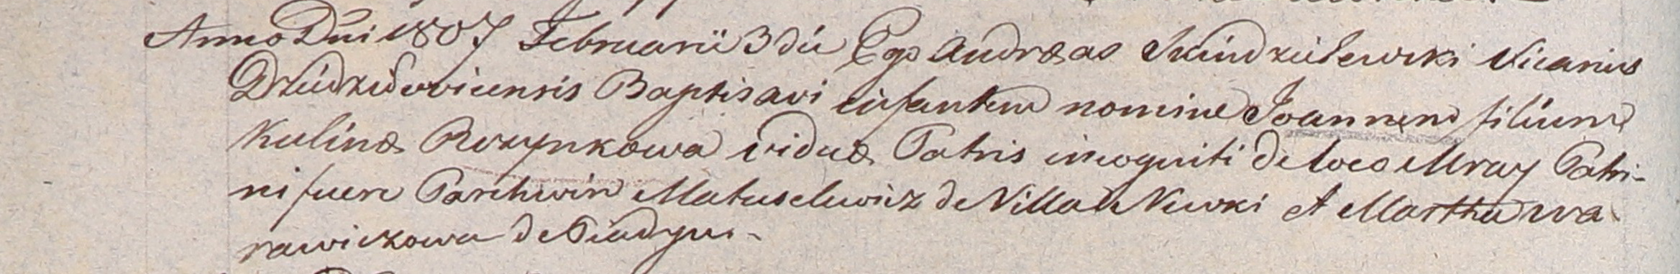 Anno Dni 1807 Februarii 3 dii Ego Andræas Skindzielewski Vicarius
Dziedzilovicensis Baptisavi infantem nomine Joannem filium
Kulinæ Rozynkowa viduæ Patris incogniti de loco Mray Patri-
ni fuere Parchwin Matuselewicz de Villa Niwki et Martha Wa
rawiczowa de